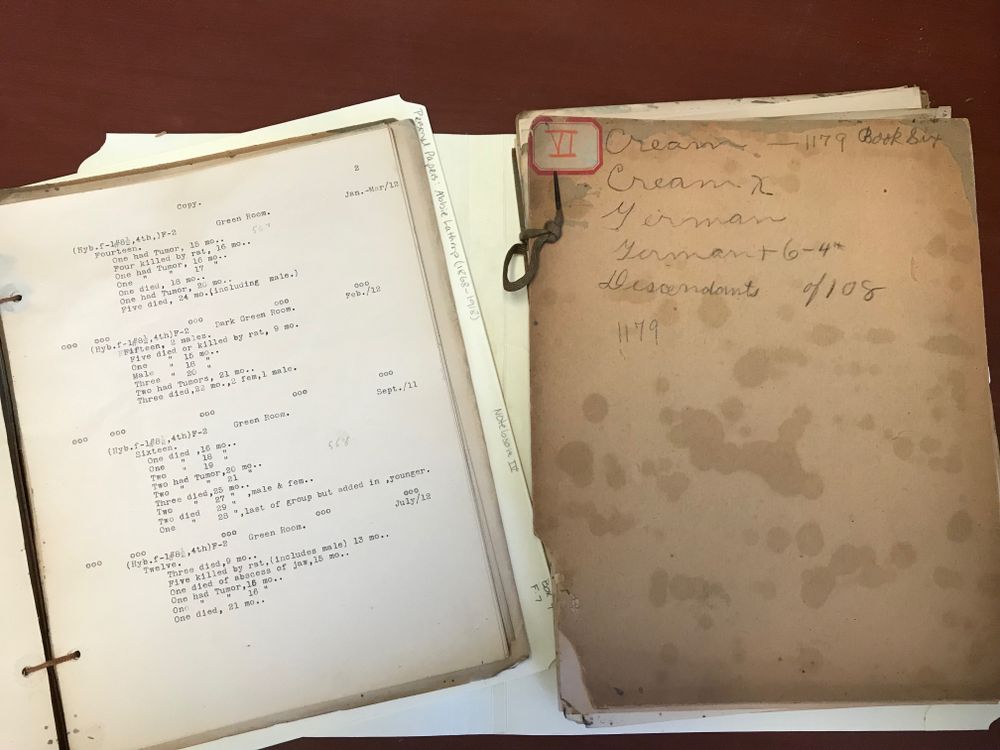 2
Copy.
Jan.-Mar/12
Green Room.
(Hyb.f-1#8½,4th,)F-2
Fourteen.
One had Tumor, 15 mo..
Four killed by rat, 16 mo..
One had Tumor, 16 mo..
One " " 17 "
One died, 18 mo..
One had Tumor, 20 mo..
Five died, 24 mo.(including male.)
ooo ooo ooo
Feb./12
ooo ooo Dark Green Room.
(Hyb.f-1#8½,4th)F-2
Fifteen, 2 males.
Five died or killed by rat, 9 mo.
One " 15 mo..
Male " 18 "
Three " 20 "
Two had Tumors, 21 mo..
Three died,22 mo.,2 fem,1 male.
ooo ooo ooo ooo
Sept./11
Green Room.
(Hyb.f-1#8½,4th)F-2
Sixteen.
One died ,16 mo..
One " 18 "
Two " 19 "
Two had Tumor,20 mo..
Two " " 21 "
Three died,25 mo..
Two " 27 " ,male & fem..
Two died 29 "
One " 28 ",last of group but added in ,younger.
ooo ooo ooo ooo
July/12
ooo Green Room.
(Hyb.f-1#8½,4th)F-2
Twelve.
Three died,9 mo..
Five killed by rat,(includes male) 13 mo..
One died of abscess of jaw,15 mo..
One had Tumor,15 mo..
One " " 16 "
One died, 21 mo..
Personal Papers - Abbie Lathrop (1868-1918)
Notebook IV
Box 4
F.7
VI
Cream — 1179 Book Six
Cream X
German
German + 6-4
Descendants of 108
1179